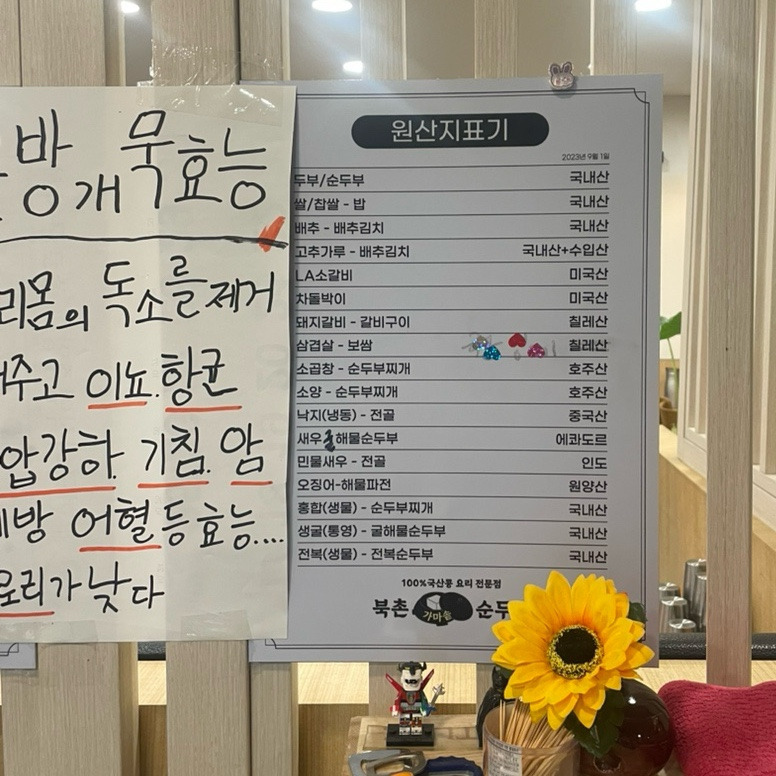 방개묵효능
리몸의 독소를제거
해주고 이뇨.항균
압강하. 기침. 암
예방 어혈등효능....
요리가 낫다
원산지표기
2023년 9월 1일
두부/순두부 국내산
쌀/찹쌀 - 밥 국내산
배추 - 배추김치 국내산
고추가루 - 배추김치 국내산+수입산
LA소갈비 미국산
차돌박이 미국산
돼지갈비 - 갈비구이 칠레산
삼겹살 - 보쌈 칠레산
소곱창 - 순두부찌개 호주산
소양 - 순두부찌개 호주산
낙지(냉동) - 전골 중국산
새우굴해물순두부 에콰도르
민물새우 - 전골 인도
오징어-해물파전 원양산
홍합(생물) - 순두부찌개 국내산
생굴(통영) - 굴해물순두부 국내산
전복(생물) - 전복순두부 국내산
100%국산콩 요리 전문점
북촌 가마솥 순두